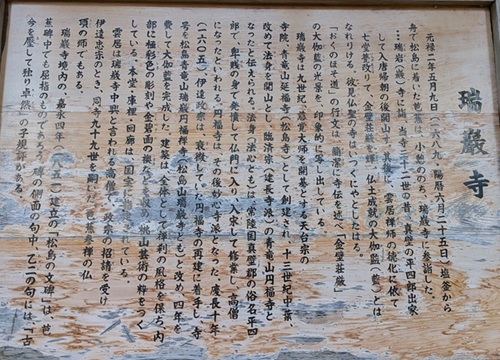 瑞巌寺
元禄二年五月九日(一六八九、陽暦六月二十五日)塩釜から
舟で松島に着いた芭蕉は、小憩ののち、瑞巌寺に参詣した。
…瑞岩(巌)寺に詣、当寺三十二世の昔、真壁の平四郎出家
して入唐帰朝の後開山す。其後に、雲居禅師の徳化に依て
七堂甍改りて、金壁荘厳光を輝、仏土成就の大伽藍(藍)とは
なれりける。彼見仏聖の寺は、いづくにやとしたはる。
『おくのほそ道』の行文は、簡潔に寺伝を述べ「金壁荘厳」
の大伽藍の光景を、印象的に写し出している。
瑞巌寺は九世紀、慈覚大師を開基とする天台宗の
寺院、青竜山延福寺(松島寺)として創建され、十三世紀中葉、
改めて法身を開山とし、臨済宗(建長寺派)の青竜山円福寺と
なったと伝えられる。法身(法心とも)は常陸国真壁郡の俗名平四
郎で、卑賎の身で発憤して仏門に入り、入宋して修業し、高僧
になったといわれる。円福寺は、その後妙心寺派となった。慶長十年
(一六〇五)伊達政宗は、衰微していた円福寺の再建に着手し、寺
号を松島青竜山瑞巌円福禅寺(松島山瑞巌寺とも)と改め、四年を
費して大伽藍を完成した。建築は全体として雄利の風格を保ち、内
部に極彩色の彫刻や金碧画の襖などを多く収め、桃山芸術の粋をつく
している。本堂、庫裡、回廊は、国宝に指定されている。
雲居は瑞巌寺中興と言われる高僧で、政宗の招請を受け
伊達忠宗のとき、同寺九十九世を嗣いだ。芭蕉参禅の仏
頂の師でもある。
瑞巌寺境内の、嘉永四年(一八五一)建立の「松島の文碑」は、芭
蕉碑中でも屈指のものであろう。碑の側面の句中、乙二の句には、「古
今を圧して独り卓然」の子規評がある。